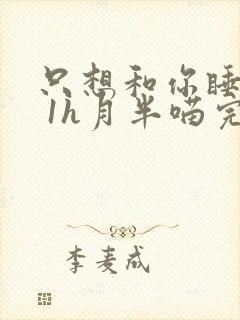 只想和你睡
1h月半喵完
李麦成